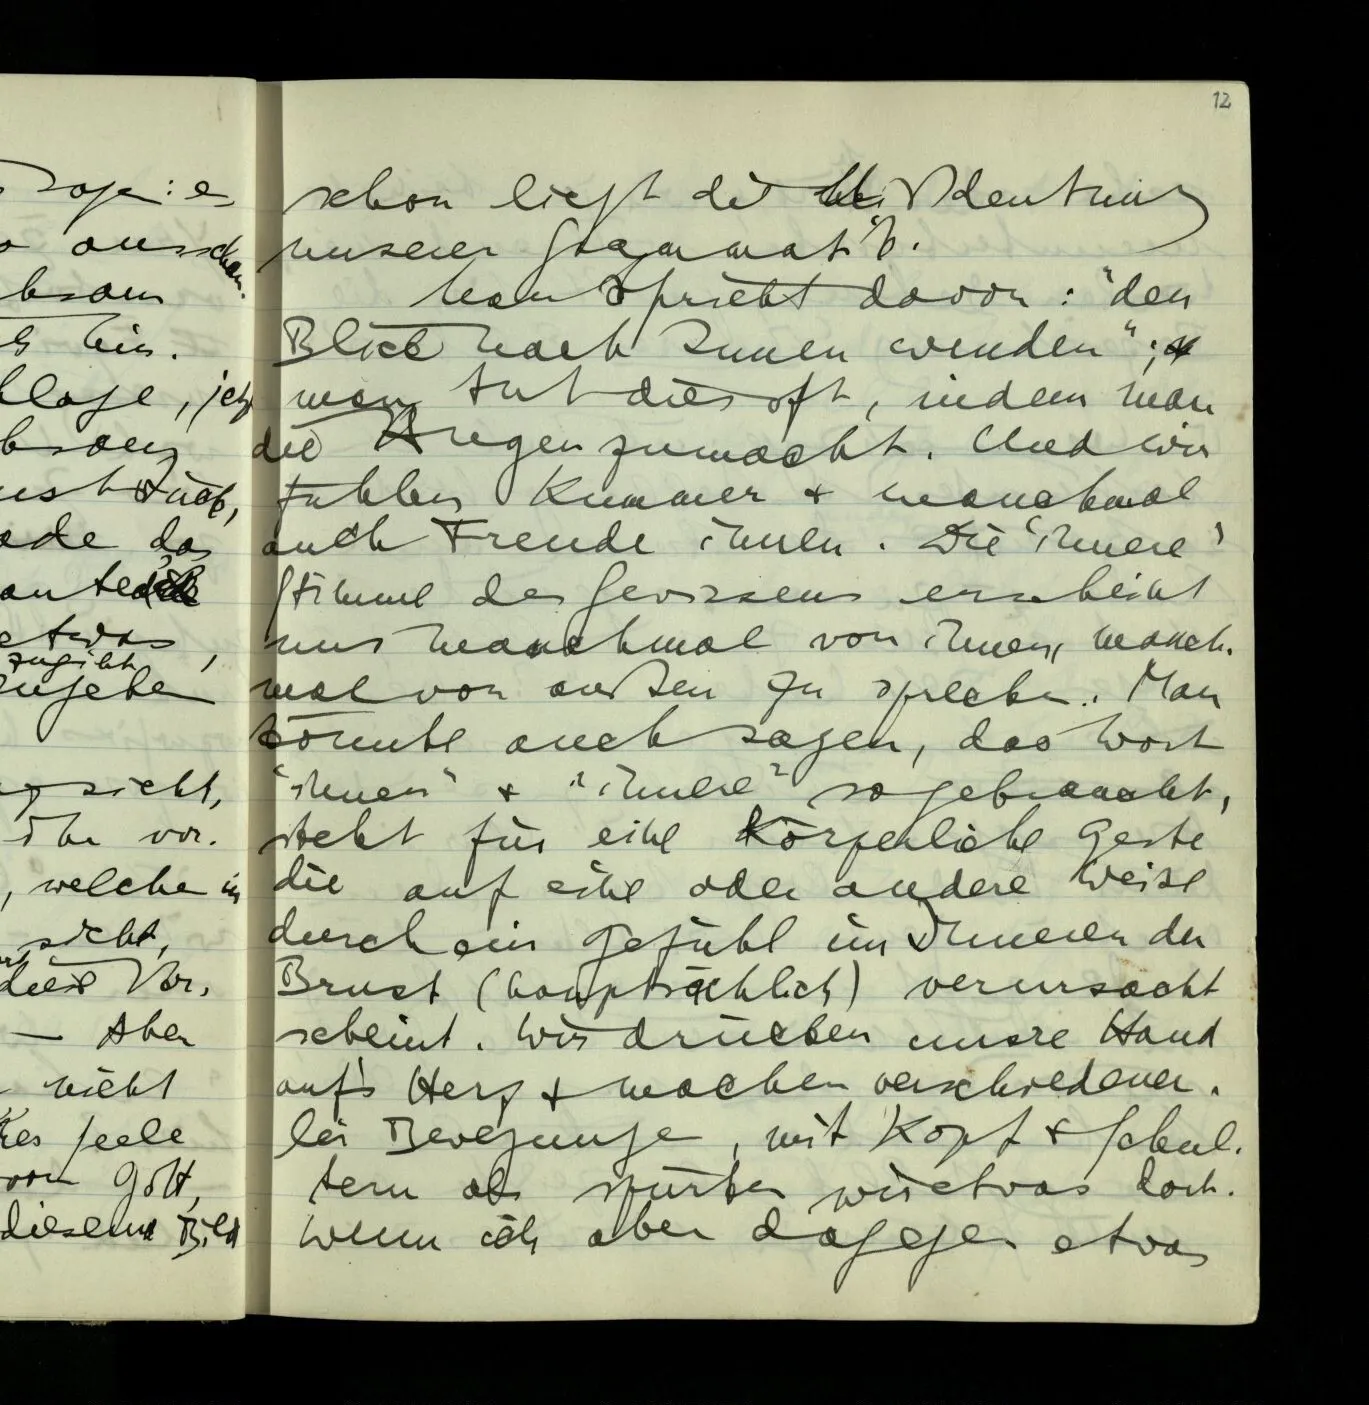 12
sage: es
ausschau.
hin.
, jetzt
das
etwas,
zugibt
zugeben
sieht,
ihr vor.
, welche in
sieht,
diese Vor,
— Aber
nicht
Seele
von Gott,
diesem Bild
schon liegt die Mißdeutung
unserer Grammatik.
Man spricht davon: "den
Blick nach Innen wenden";
man tut dies oft, indem man
die Augen zumacht. Und wir
fühlen Kummer & manchmal
auch Freude innen. Die "innere"
Stimme des Gewissens erscheint
uns manchmal von innen, manch-
mal von außen zu sprechen. Man
könnte auch sagen, das Wort
"innen" & "innere" so gebraucht,
steht für eine körperliche Geste
die auf eine oder andere Weise
durch ein Gefühl im Inneren der
Brust (hauptsächlich) verursacht
scheint. Wir drücken unsre Hand
auf's Herz & machen verschiedener-
lei Bewegungen, mit Kopf & Schul-
tern als spürten wir etwas dort.
Wenn ich aber dagegen etwas